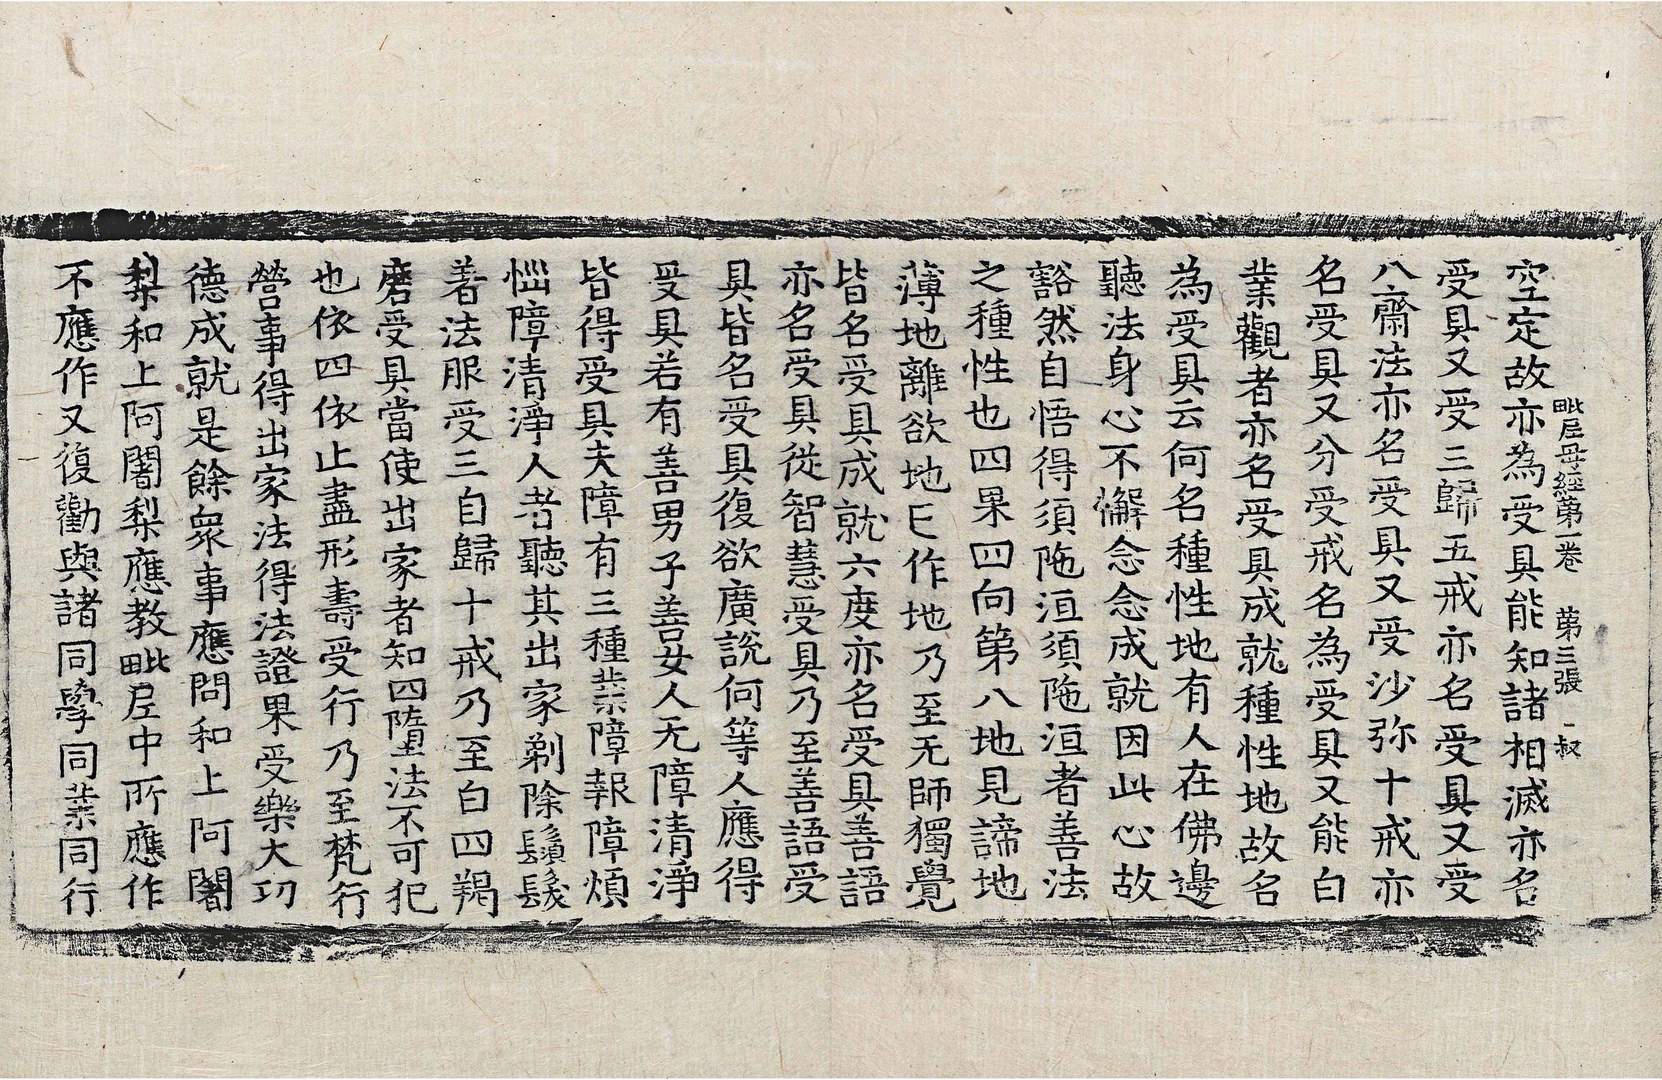 毗尼母經第一卷　第三張　叔
空定故亦為受具能知諸相滅亦名
受具又受三歸五戒亦名受具又受
八齋法亦名受具又受沙弥十戒亦
名受具又分受戒名為受具又能白
業觀者亦名受具成就種性地故名
為受具云何名種性地有人在佛邊
聽法身心不懈念念成就因此心故
豁然自悟得須陁洹須陁洹者善法
之種性也四果四向第八地見諦地
薄地離欲地已作地乃至无師獨覺
皆名受具成就六度亦名受具善語
亦名受具從智慧受具乃至善語受
具皆名受具復欲廣說何等人應得
受具若有善男子善女人无障清淨
皆得受具夫障有三種業障報障煩
惱障清淨人者聽其出家剃除鬚髮
著法服受三自歸十戒乃至白四羯
磨受具當使出家者知四墮法不可犯
也依四依止盡形壽受行乃至梵行
營事得出家法得法證果受樂大功
德成就是餘衆事應問和上阿闍
梨和上阿闍梨應教毗尼中所應作
不應作又復勸與諸同學同業同行